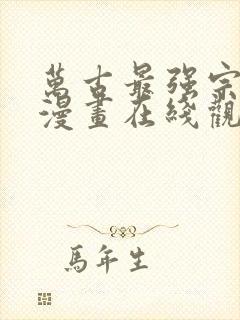 萬古最强宗
漫畫在綫觀
馬年生